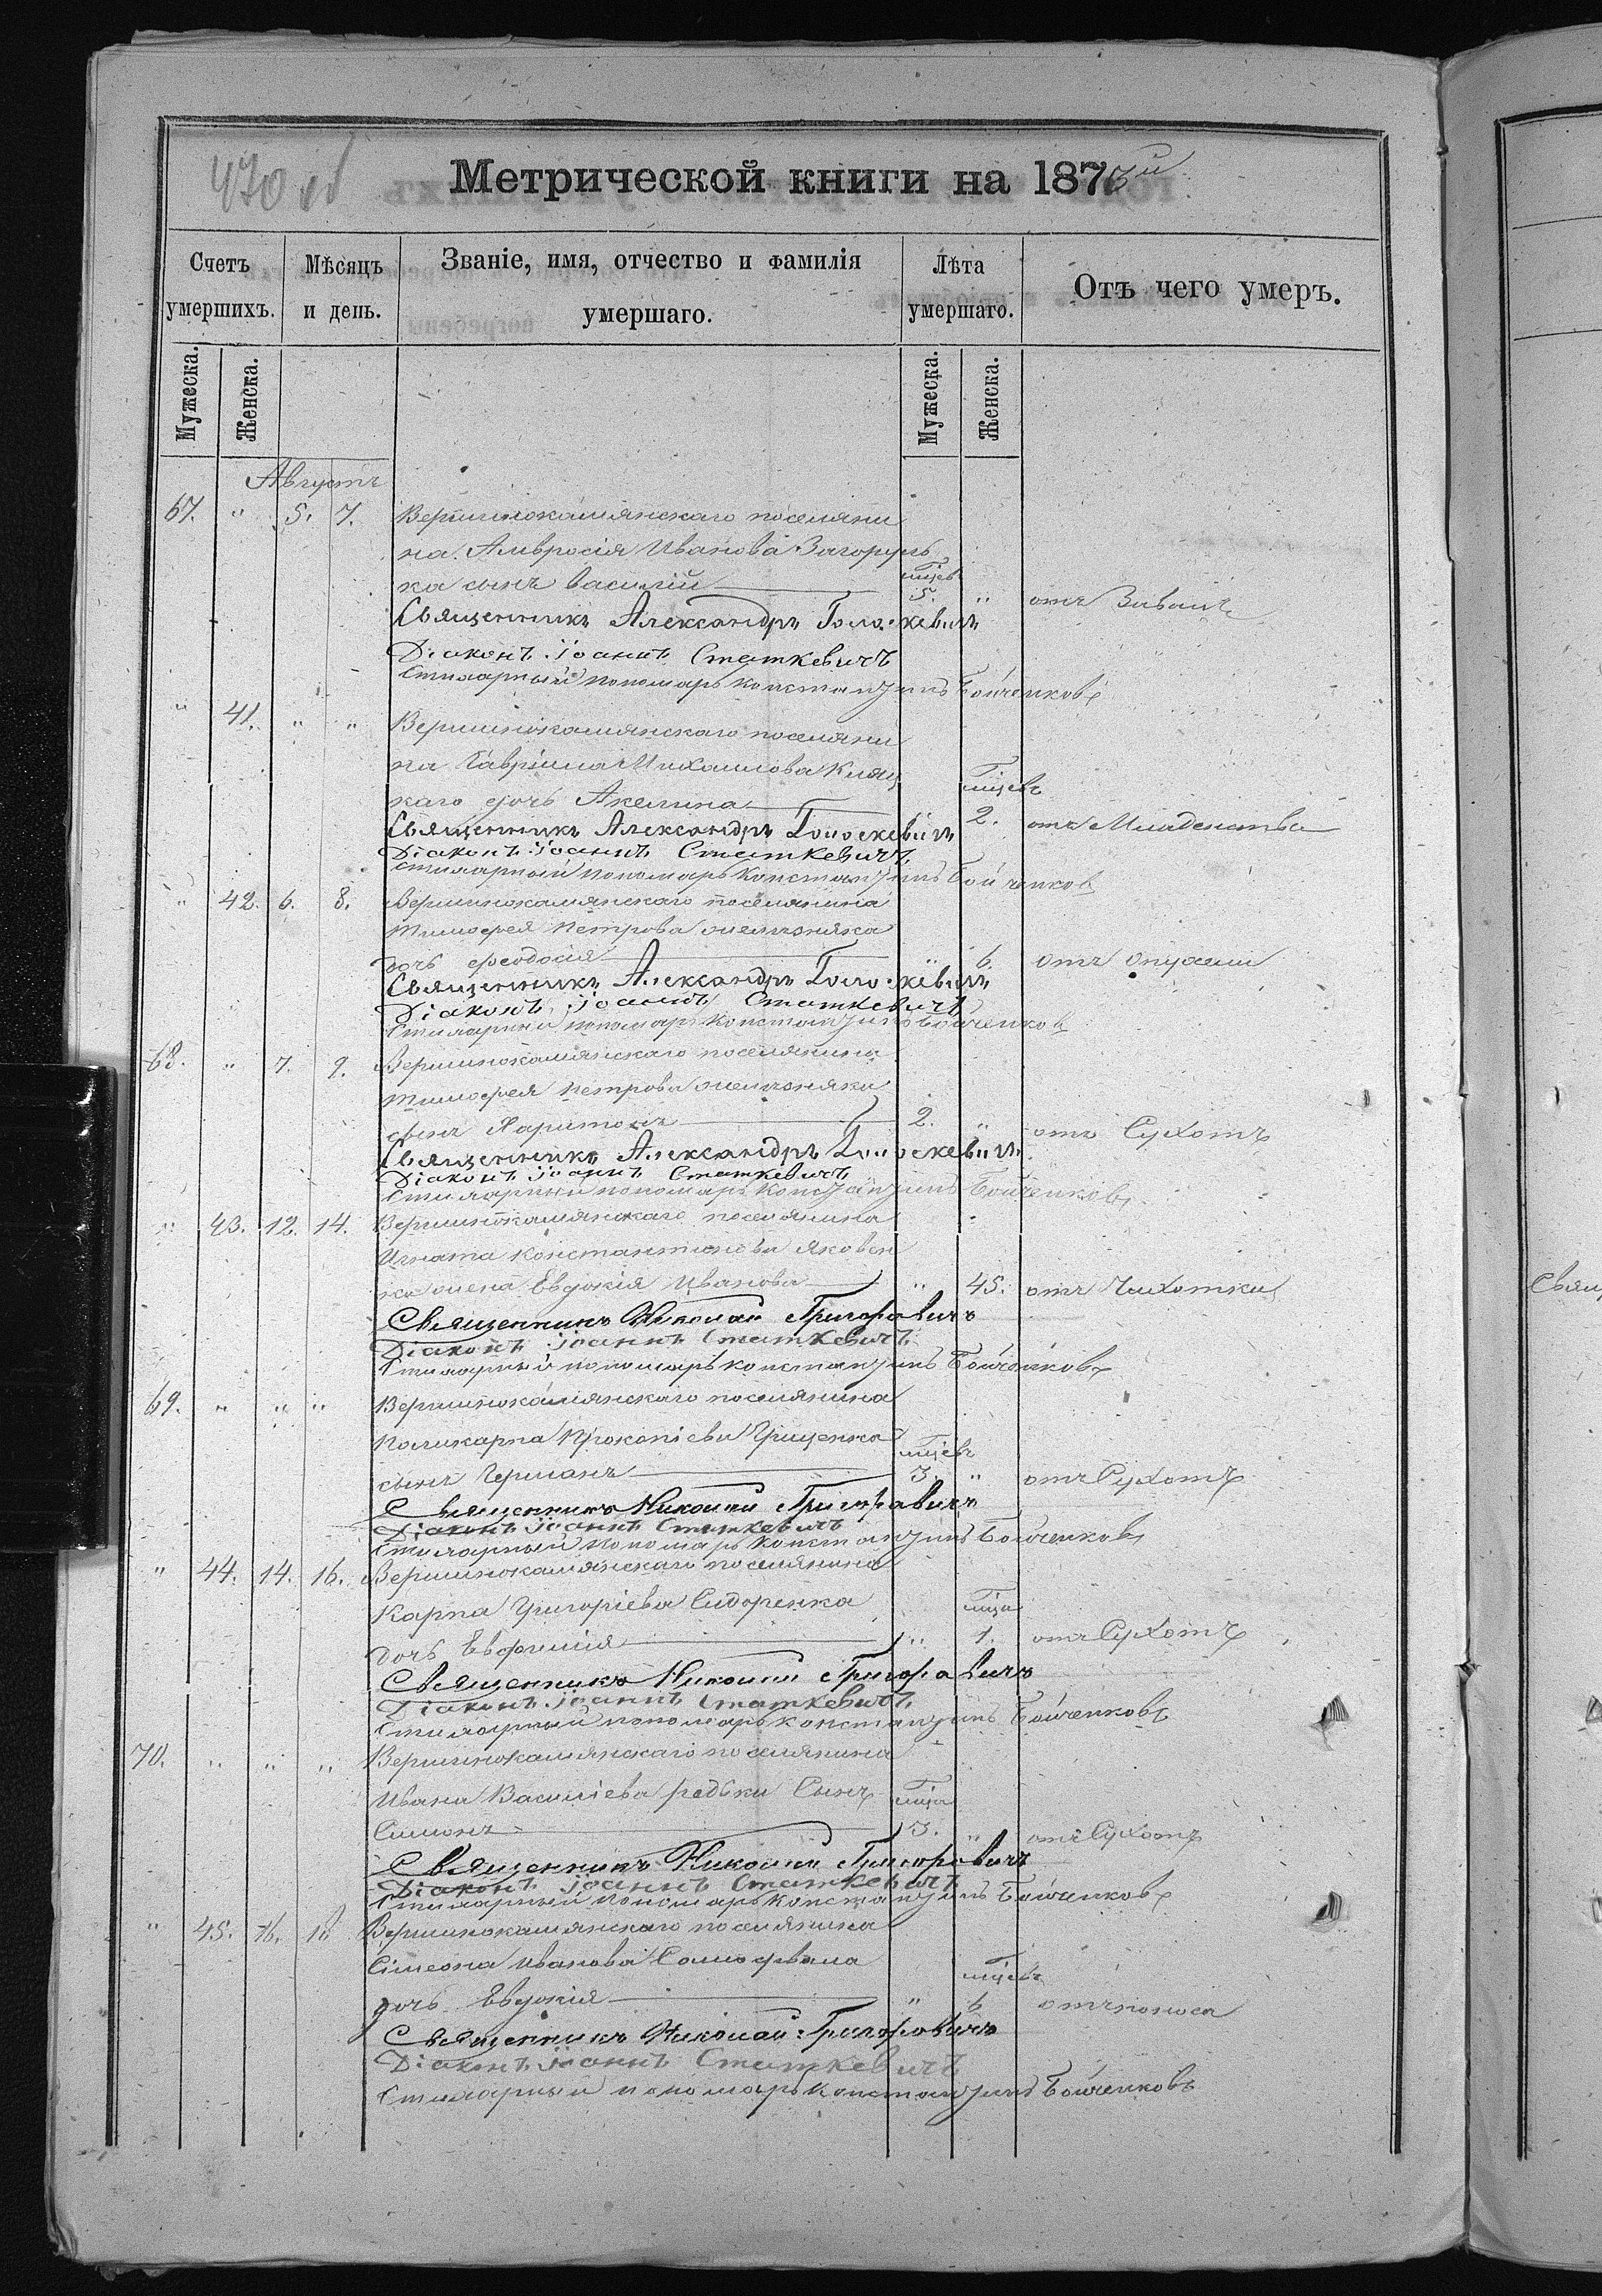 470 об
Метрической книги на 1873й
Счетъ умершихъ.
Мѣсяцъ и день.
Званіе, имя, отчество и фамилія умершаго.
Лѣта умершаго.
Отъ чего умеръ.
Мужеска.
Женска.
Мужеска.
Женска.
Августъ
67. " 5. 7. Вершинокамянскаго поселяни
на Амвросія Иванова Загоруль
ка сынъ Василій мцевъ 5. "
Священникъ Александръ Голоскевичъ
Діаконъ Іоаннъ Статкевичъ
Стихарный пономарь Константинъ Бойченковъ
" 41. " " Вершинокамянскаго поселяни
на Гавріила Михаилова
каго дочь Акилина мцевъ 2. отъ Младенства
Священникъ Александръ Голоскевичъ
Діаконъ Іоаннъ Статкевичъ
Стихарный пономарь Константинъ Бойченковъ
" 42. 6. 8. Вершинокамянскаго поселянина
Тимофея Петрова Омельяняка
дочь Феодосія " 6. отъ опухоли
Священникъ Александръ Голоскевичъ
Діаконъ Іоаннъ Статкевичъ
Стихарный пономарь Константинъ Бойченковъ
68. " 7. 9. Вершинокамянскаго поселянина
Тимофея Петрова Омельяняка
сынъ Харитонъ 2. " отъ Сухотъ
Священникъ Александръ Голоскевичъ
Діаконъ Іоаннъ Статкевичъ
Стихарный пономарь Константинъ Бойченковъ
" 43. 12. 14. Вершинокамянскаго поселянина
Игната Константинова Яковен
ка жена Евдокія Иванова " 45. отъ Чихотки
Священникъ Николай Григоровичъ
Діаконъ Іоаннъ Статкевичъ
Стихарный пономарь Константинъ Бойченковъ
69. " " " Вершинокамянскаго поселянина
Поликарпа Прокопіева Грищенка
сынъ Германъ мцевъ 3. " отъ Сухотъ
Священникъ Николай Григоровичъ
Діаконъ Іоаннъ Статкевичъ
Стихарный пономарь Константинъ Бойченковъ
" 44. 14. 16. Вершинокамянскаго поселянина
Карпа Григоріева Сидоренка
дочь Евфимія " мца 1. отъ Сухотъ
Священникъ Николай Григоровичъ
Діаконъ Іоаннъ Статкевичъ
Стихарный пономарь Константинъ Бойченковъ
70. " " " Вершинокамянскаго поселянина
Ивана Василіева Редьки Сынъ
Симонъ мца 3. " отъ Сухотъ
Священникъ Николай Григоровичъ
Діаконъ Іоаннъ Статкевичъ
Стихарный пономарь Константинъ Бойченковъ
" 45. 16. 18 Вершинокамянскаго поселянина
Сімеона Иванова Самофала
дочь Евдокія " мцевъ 6 отъ поноса
Священникъ Николай Григоровичъ
Діаконъ Іоаннъ Статкевичъ
Стихарный пономарь Константинъ Бойченковъ